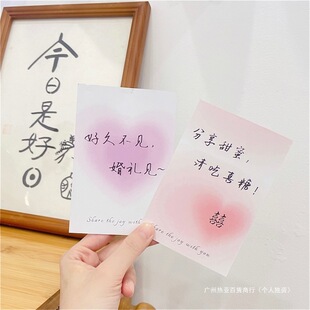 今日是好日
好久不见，
婚礼见~
Share the joy with you
分享甜蜜，
请吃喜糖！
囍
Share the joy with you
广州热圣百货商行（个人独资）